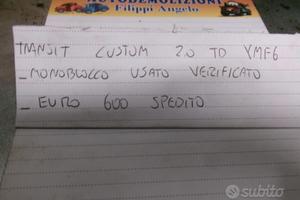 AUTODEMOLIZIONI
Filippi Angelo
TRANSIT CUSTOM 2.0 TD YMF6
_ MONOBLOCCO USATO VERIFICATO
_ EURO 600 SPEDITO
subito